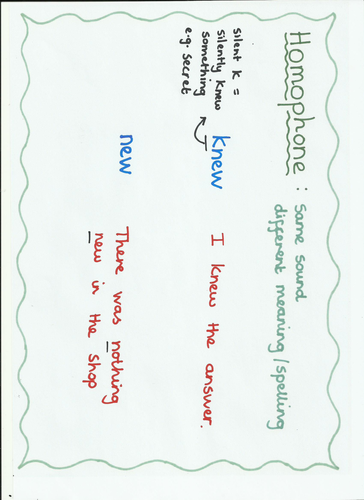 Homophone: same sound
different meaning/spelling
silent k =
silently knew
something
e.g. secret
knew
I knew the answer.
new
There was nothing
new in the shop